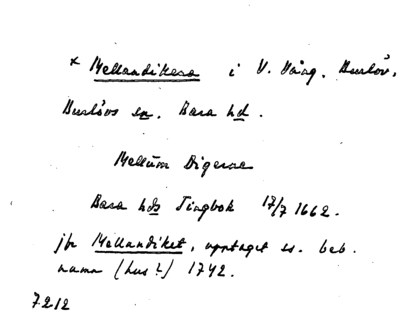 × Mellandikesa i V. Vång. Burlöv,
Burlövs sn. Bara hd.
Mellum Digerne
Bara hds Tingbok 17/7 1662.
jfr Mellandiket, upptaget ss. beb.
namn (hus?) 1742.
7212